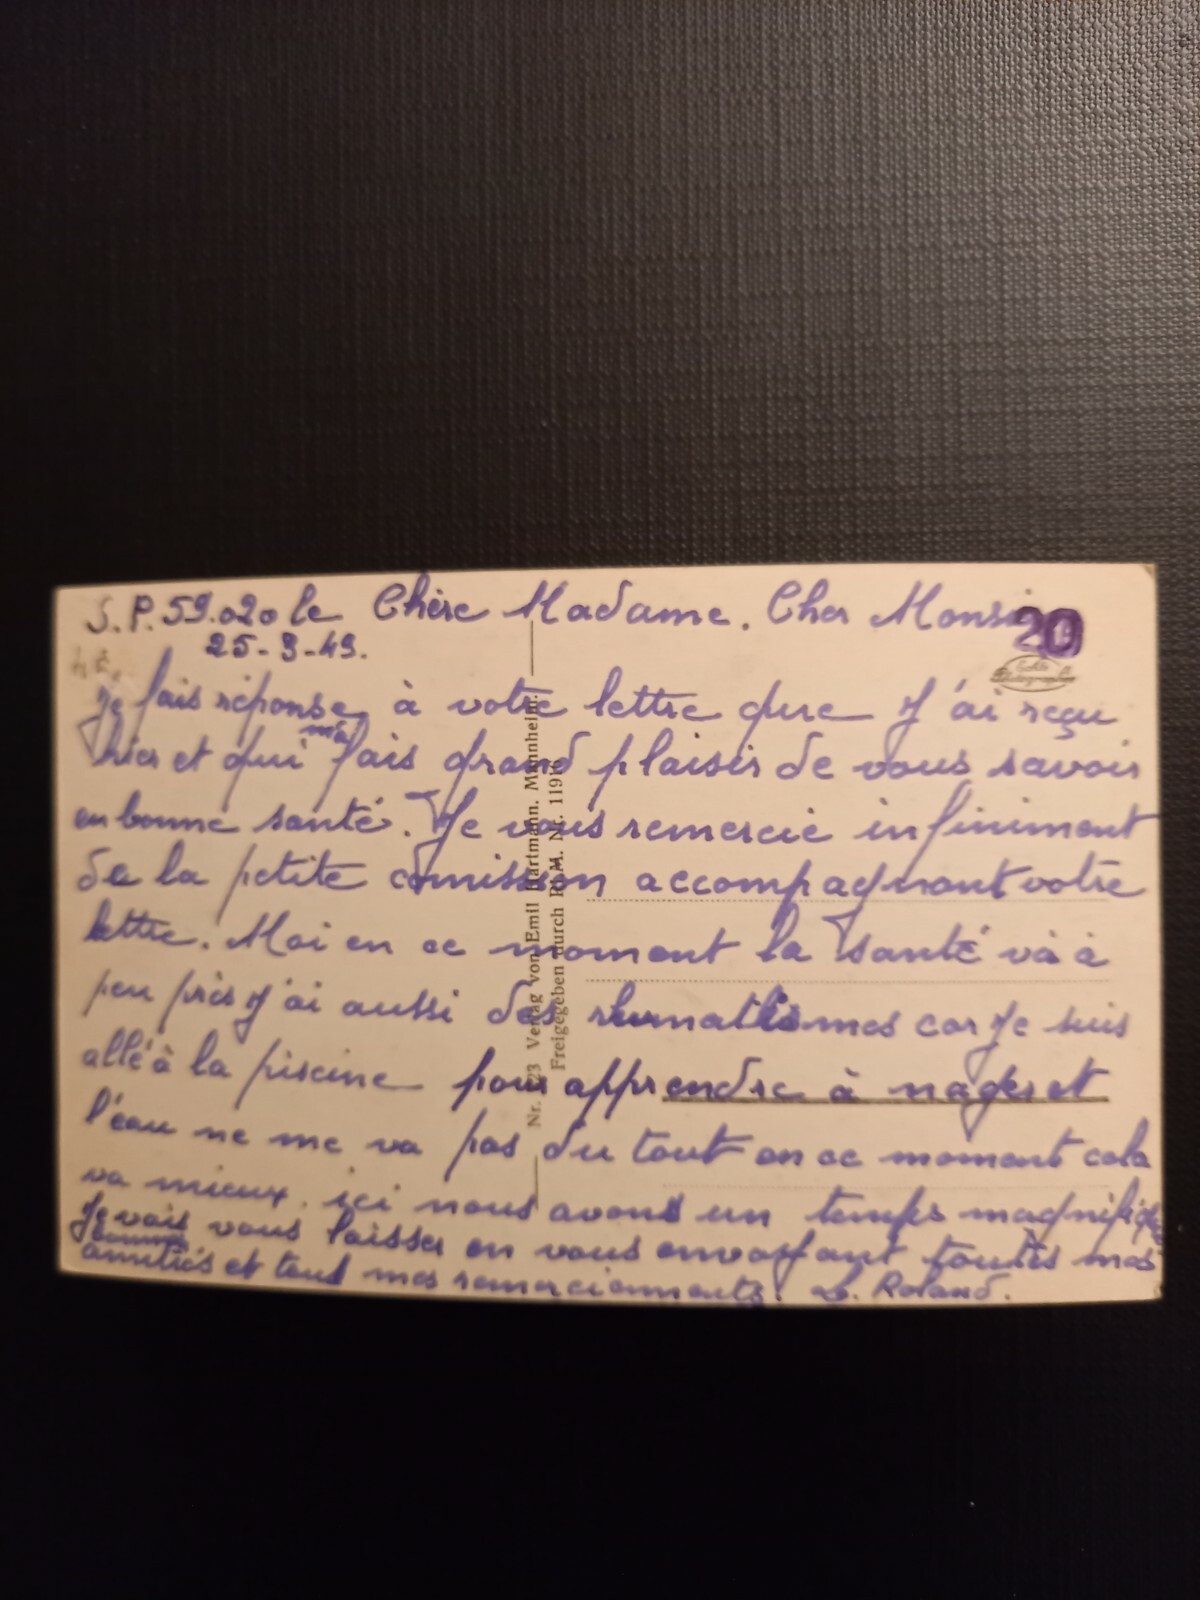 S.P. 59.020 le Chère Madame. Cher Monsi
20
25-3-49.
Echte Photographie
Je fais réponse à votre lettre que J'ai reçu
hier et qui m'a fais grand plaisir de vous savoir
en bonne santé. Je vous remercie infiniment
de la petite comission accompagnant votre
lettre. Moi en ce moment la santé và à
peu près J'ai aussi des rhumatismes car Je suis
allé à la piscine pour apprendre à nager et
l'eau ne me va pas du tout en ce moment cela
va mieux. ici nous avons un temps magnifique
Je vais vous laisser en vous envoyant toutes mes
amitiés et tous mes remerciements. Roland.
Nr. 123 Verlag von Emil Hartmann. Mannheim.
Freigegeben durch R.L.M. Nr.